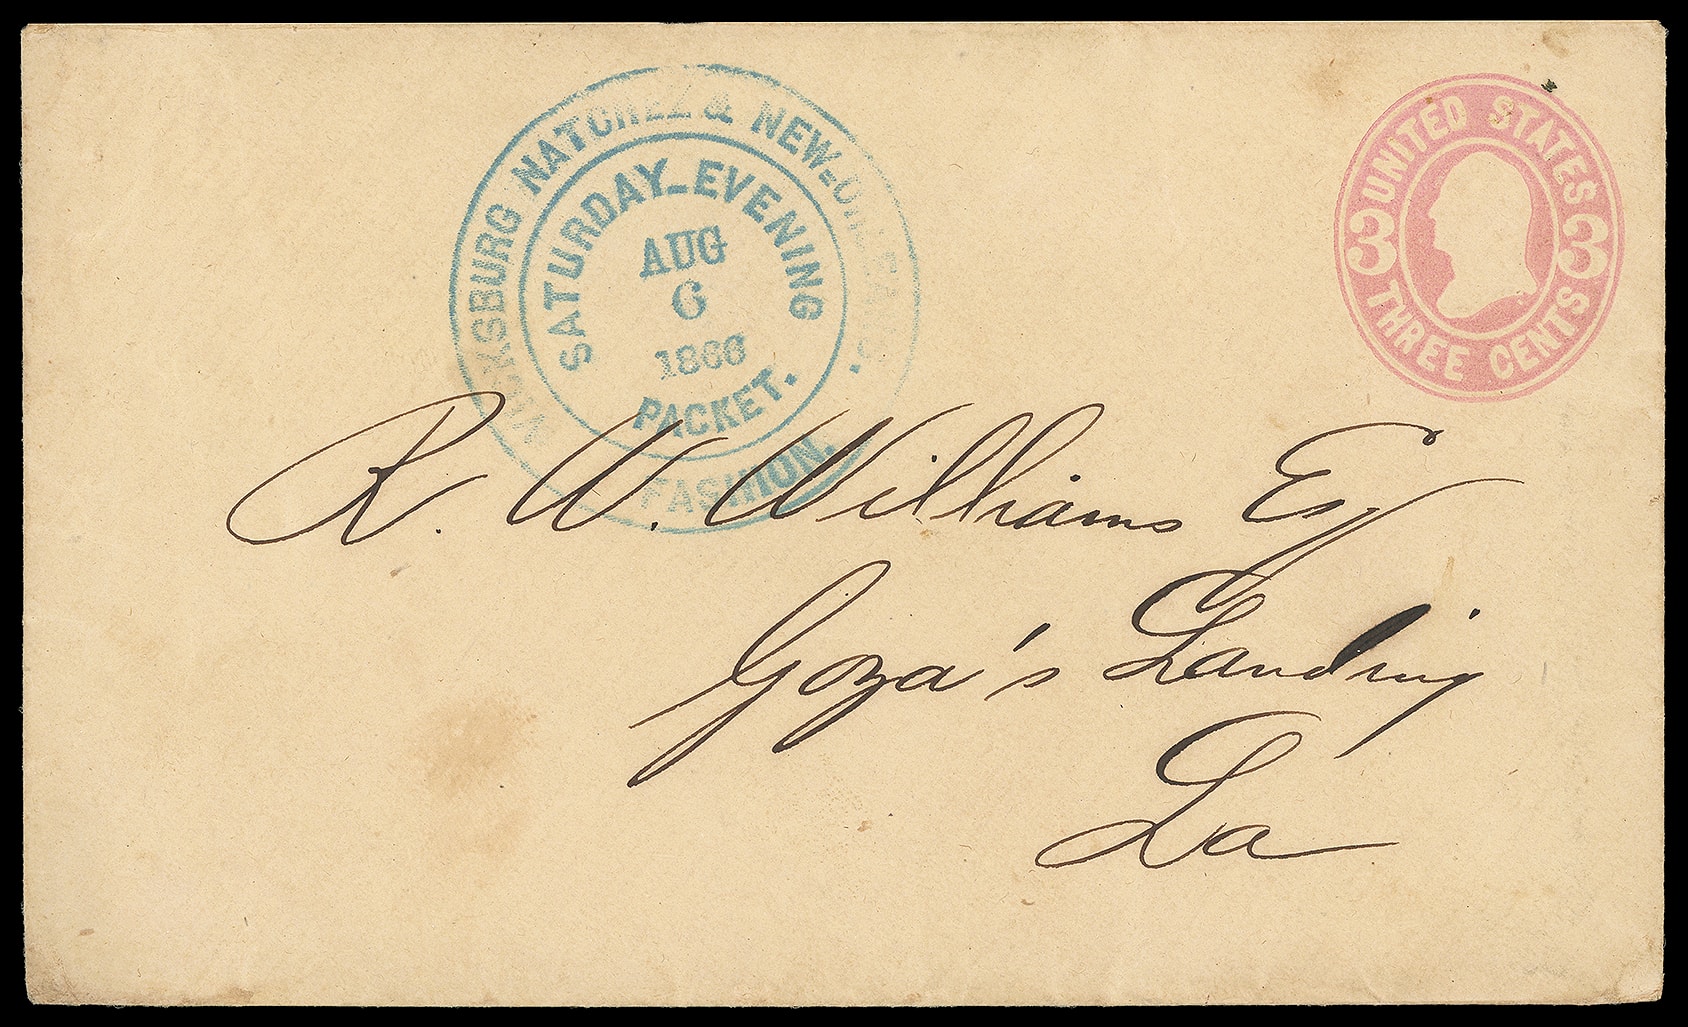 VICKSBURG NATCHEZ & NEW-ORLEANS.
SATURDAY-EVENING
AUG
6
1866
PACKET.
FASHION.
UNITED STATES
3 3
THREE CENTS
R. W. Williams Esq
Goza's Landing
La